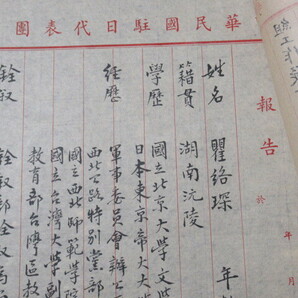 華民國駐日代表團
報告
於
年 月
姓名 瞿絡琛 年
籍貫 湖南沅陵
學歷 國立北京大學文學
日本東京帝大大學
經歷 軍事委員會辦公
西北公路特別黨部
國立西北師範學院
國立台灣大學副
教育部台灣區教
銓敘 銓敘部